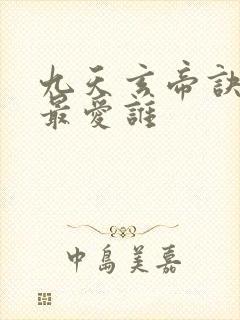 九天玄帝訣
最愛誰
中島美嘉